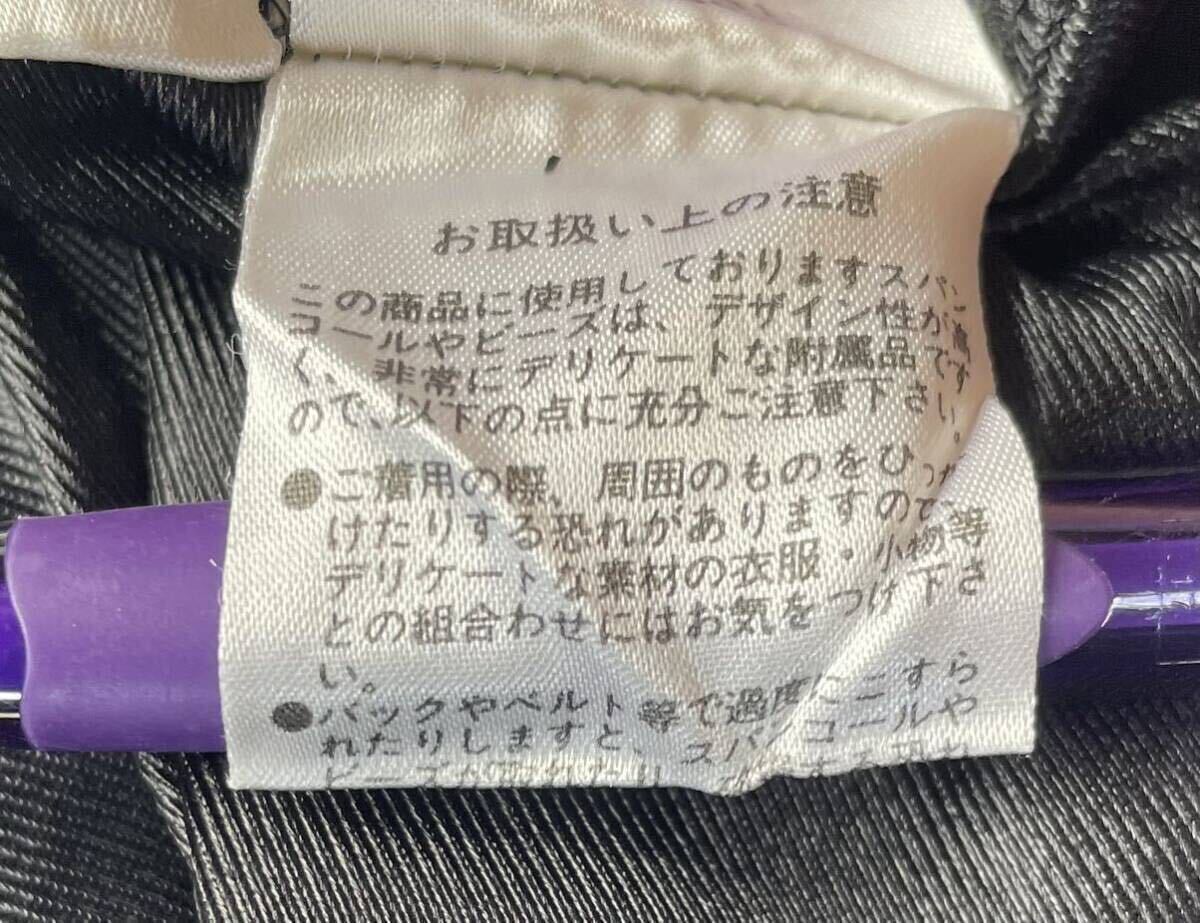 お取扱い上の注意
この商品に使用しておりますスパン
コールやビーズは、デザイン性が高
く、非常にデリケートな附属品です
ので、以下の点に充分ご注意下さい。
●ご着用の際、周囲のものをひっか
けたりする恐れがありますので
デリケートな素材の衣服・小物等
との組合わせにはお気をつけ下さ
い。
●バックやベルト等で過度にこすら
れたりしますと、スパンコールや
ビーズが取れたり